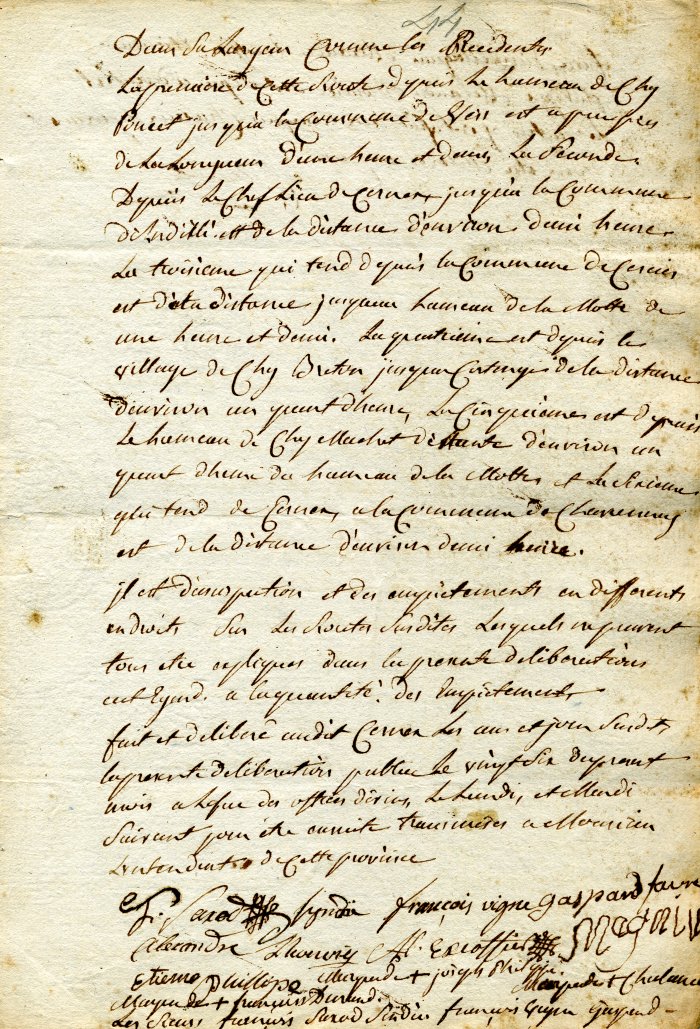 44
Dans sa Largeur Comme les Precedentes
La premiere de cette Route depuis Le hameau de Chez
Poncet jusqu'a la Commune de Vers est a peu pres
de La Longueur d'une heure et demy La Seconde
Depuis Le Chef Lieu de Cernex jusqu'a la Commune
d'Andilli est de la distance d'environ demi heure
La troisieme qui tend depuis la Commune de Cercier
est de la distance jusqu'au hameau de la Motte de
une heure et demi. La quatrieme est depuis le
village de Chez Breton jusqu'a de la distance
d'environ un quart d'heure, La Cinquieme est depuis
Le hameau de Chez Machet distante d'environ un
quart d'heure du hameau de la Motte et La Sixieme
qui tend de Cernex a la Commune de
est de la distance d'environ demi heure.
jl est d'inspection et des empietements en differents
endroits Sur Les Routes Susdites Lesquels ne peuvent
tous etre expliqués dans la presente deliberation
eut Egard a la quantité des Empietements
fait et deliberé audit Cernex Les ans et jour Susdits
la presente deliberation publiée Le vingt Six du present
mois a des offices divins, Le Lundi, et Mardi
Suivant pour être ensuite transmises a Monsieur
L'intendent de cette province
Sarod Syndic françois vigne gaspard favre
Alexandre Excoffier Magnin
Etienne Philippe Marque de + joseph Philippe Marque de +
Marque de + françois Durand
Les Sieurs françois Sarod Sindic françois vigne gaspard